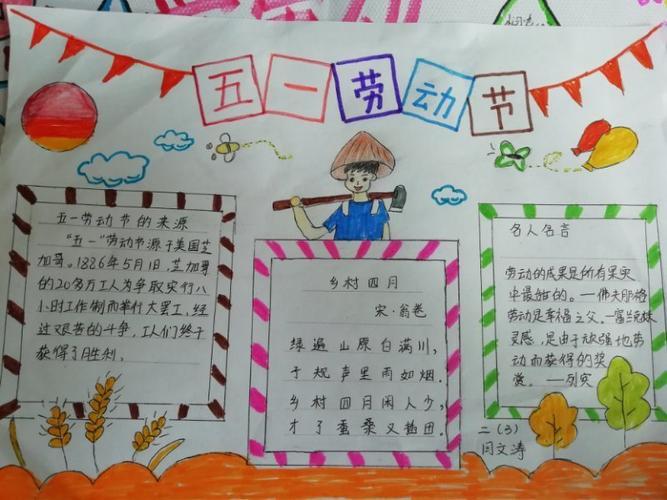 五一劳动节
五一劳动节的来源
“五一”劳动节源于美国芝
加哥。1886年5月1日,芝加哥
的20多万工人为争取实行八
小时工作制而举行大罢工,经
过艰苦的斗争,工人们终于
获得了胜利。
乡村四月
宋·翁卷
绿遍山原白满川,
子规声里雨如烟。
乡村四月闲人少,
才了蚕桑又插田。
名人名言
劳动的成果是所有果实
中最甜的。——佛夫那格
劳动是幸福之父。——富兰克林
灵感,是由于顽强地劳
动而获得的奖
赏。——列宾
二(3)
闫文涛